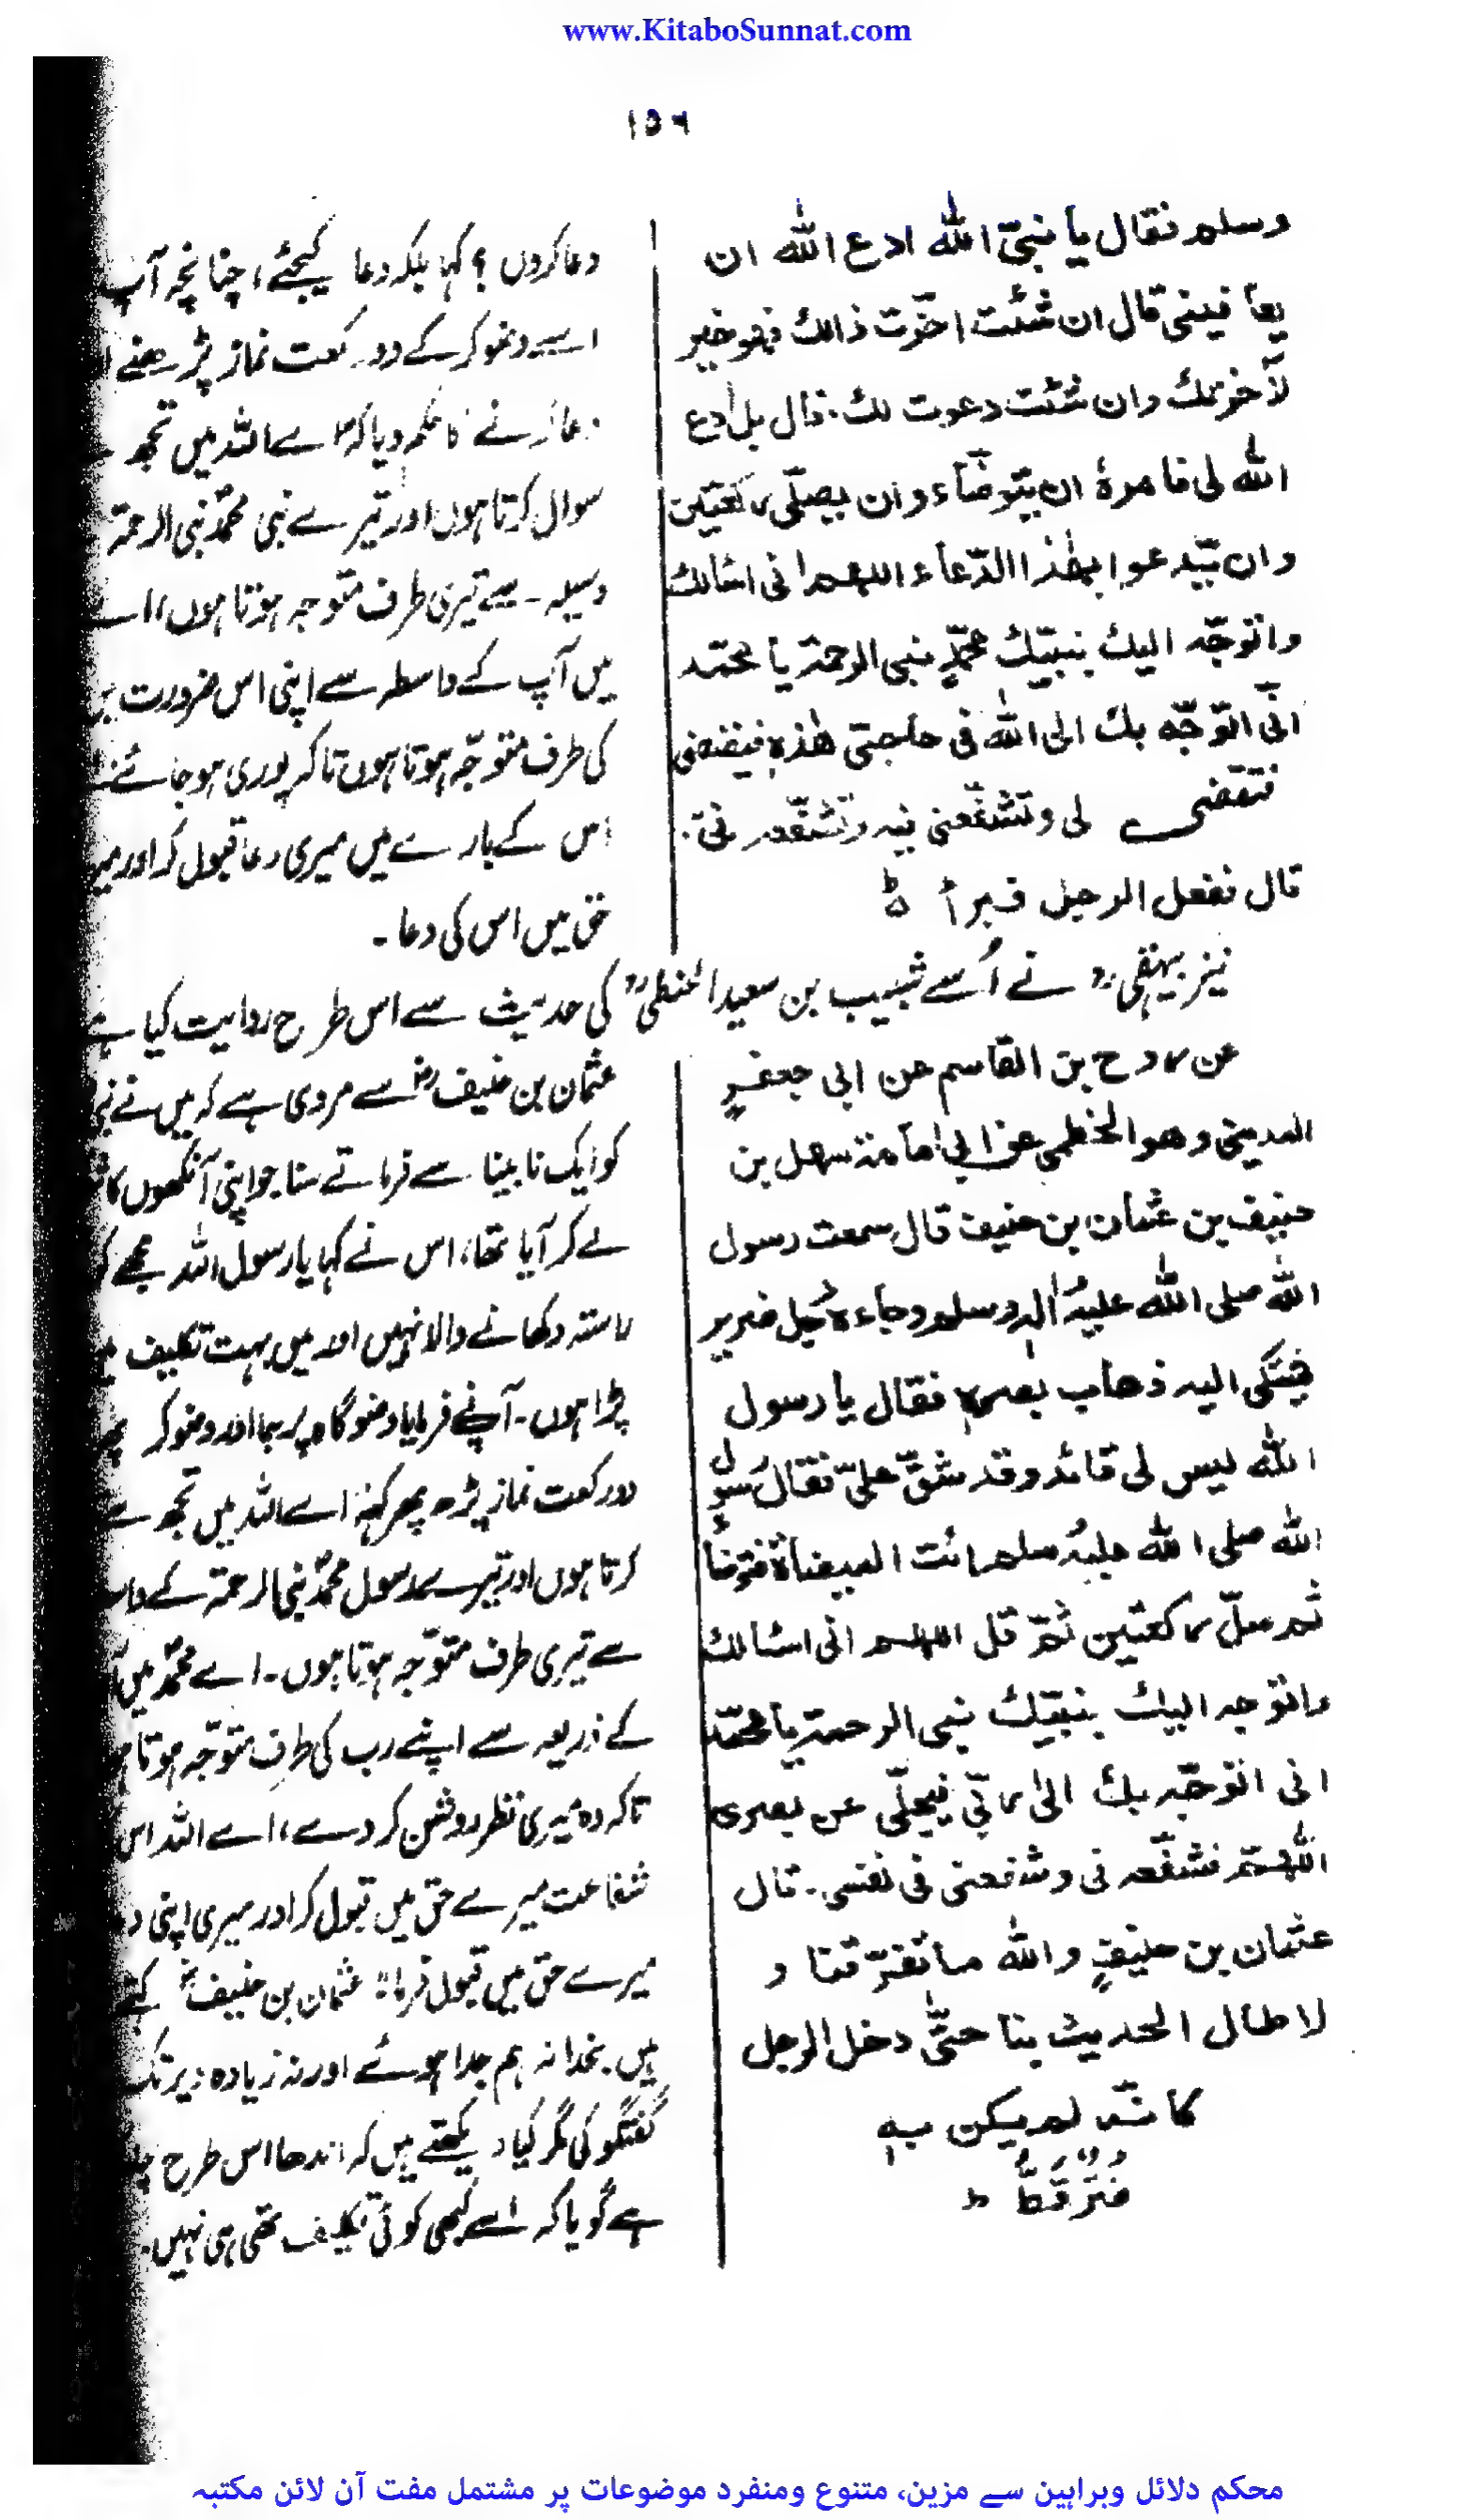 www.KitaboSunnat.com
۱۵۶
وسلم فقال یا نبیّ اللّٰہ ادع اللّٰہ ان
یعافینی قال ان شئت اخّرت ذالك فھو خیر
لآخرتك وان شئت دعوت لك. قال بل ادع
اللّٰہ لی فامرہٗ ان یتوضّاء وان یصلّی رکعتین
وان یّدعوا بھٰذا الدّعاء اللھم انی اسٔالك
واتوجّہ الیك بنبیّك محمّدٍ نبی الرحمۃ یا محمّد
انّی اتوجّہ بك الی اللّٰہ فی حاجتی ھٰذہٖ فیقضٰی
فتقضٰی لی وتشفّعنی فیہ وتشفّعہ فیّ.
قال ففعل الرجل فبرأ ط
دعا کردوں ؟ کہا بلکہ دعا کیجئے، چنانچہ آپ
اسے وضو کر کے دو رکعت نماز پڑھنے
دعا کرنے کا حکم دیا کہ "اے اللہ میں تجھ
سوال کرتا ہوں اور تیرے نبی محمّد نبی الرحمۃ
وسیلہ سے تیری طرف متوجہ ہوتا ہوں،
میں آپ کے واسطہ سے اپنی اس ضرورت
کی طرف متوجّہ ہوتا ہوں تاکہ پوری ہو جائے
اس کے بارے میں میری دعا قبول کر اور
حق میں اس کی دعا ۔
نیز بیہقی رح نے اُسے شبیب بن سعید الحنطی رح کی حدیث سے اس طرح روایت کیا ہے
عن روح بن القاسم عن ابی جعفرٍ
المدینی وھو الخطمی عن ابی امامۃ سھل بن
حنیف بن عثمان بن حنیف قال سمعت رسول
اللّٰہ صلی اللّٰہ علیہ واٰلہ وسلم وجاءہ رجل ضریر
فیشکی الیہ ذھاب بصرہٖ فقال یا رسول
اللّٰہ لیس لی قائد وقد شقّ علیّ فقال رسول
اللّٰہ صلی اللّٰہ علیہ وسلم ائت المیضاۃ فتوضأ
ثم صلّ رکعتین ثمّ قل اللھم انی اسٔالك
واتوجہ الیك بنبیّك نبی الرحمۃ یا محمّد
انی اتوجّہ بك الیٰ ربّی فیجلّی عن بصری
اللّٰھم فشفّعہ فی وشفعنی فی نفسی. قال
عثمان بن حنیفٍ واللّٰہ ما تفرّقنا و
لا طال الحدیث بنا حتّٰی دخل الرجل
کانّہ لم یکن بہٖ
ضُرٌّ قَطُّ ط
عثمان بن حنیف رض سے مروی ہے کہ میں نے
کو ایک نابینا سے فرماتے سنا جو اپنی آنکھوں کا
لے کر آیا تھا، اس نے کہا یا رسول اللہ مجھے
راستہ دکھانے والا نہیں اور میں بہت تکلیف
پڑا ہوں ۔ آپ نے فرمایا وضو گاہ پر جا اور وضو کر
دو رکعت نماز پڑھ پھر کہہ: اے اللہ میں تجھ سے
کرتا ہوں اور تیرے رسول محمّد نبی الرحمۃ کے
سے تیری طرف متوّجہ ہوتا ہوں ۔ اے محمّد میں
کے ذریعہ سے اپنے رب کی طرف متوّجہ ہوتا
تاکہ وہ میری نظر روشن کر دے، اے اللہ اس
شفاعت میرے حق میں قبول کر اور میری اپنی
میرے حق میں قبول فرما" عثمان بن حنیف رض کہتے
ہیں بخدا نہ ہم جدا ہوئے اور نہ زیادہ دیر تک
گفتگو کی مگر کیا دیکھتے ہیں کہ اندھا اس طرح
ہے گویا کہ اسے کبھی کوئی تکلیف تھی ہی نہیں.
محکم دلائل وبراہین سے مزین، متنوع ومنفرد موضوعات پر مشتمل مفت آن لائن مکتبہ